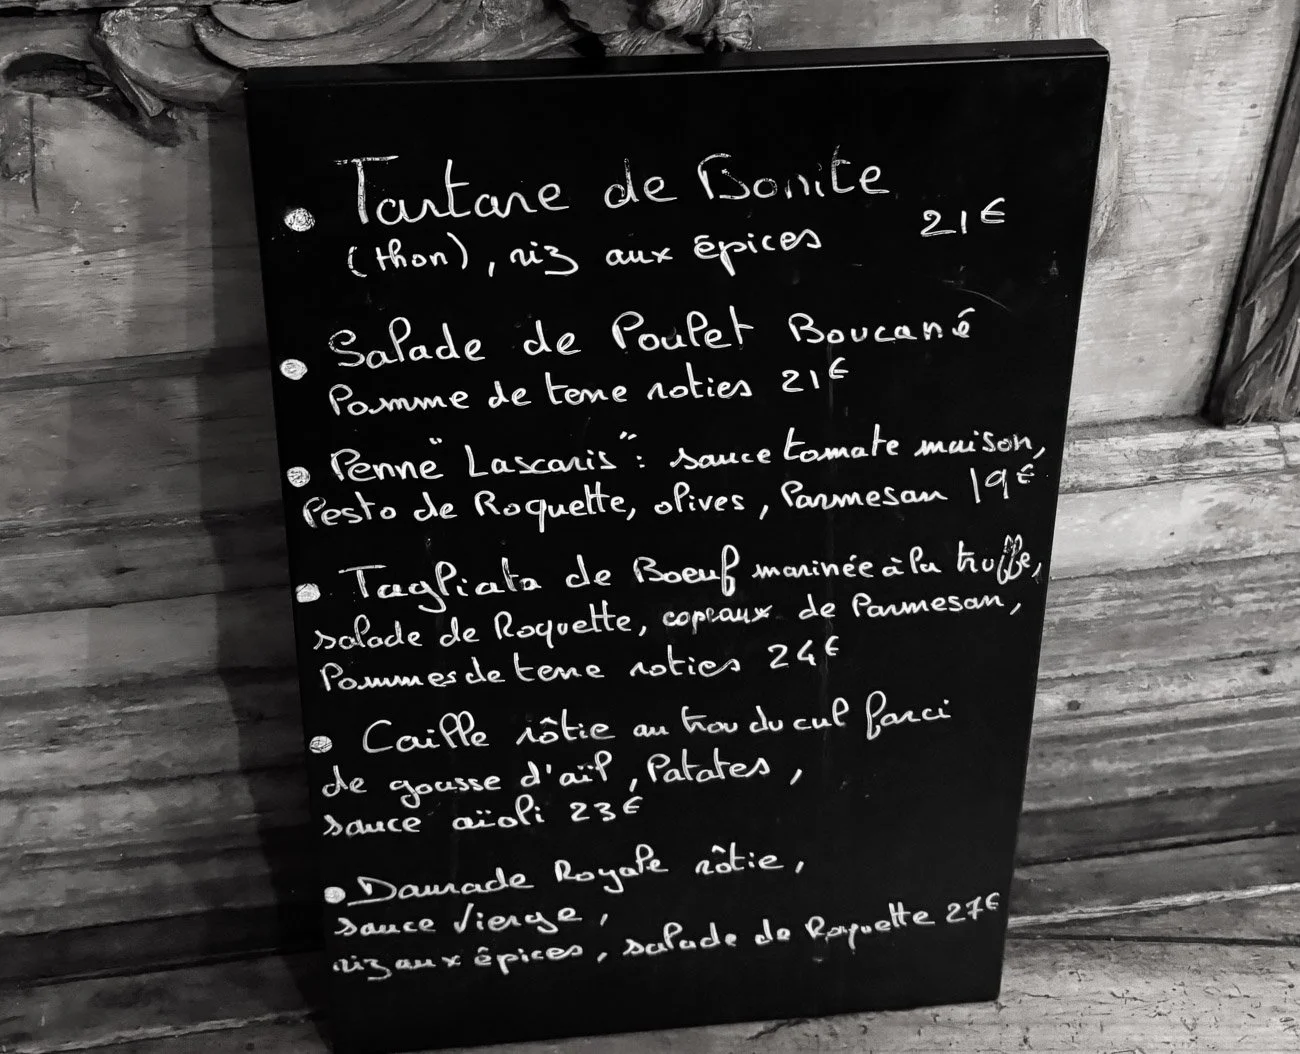 Tartare de Bonite
(thon), riz aux épices 21€
Salade de Poulet Boucané
Pomme de terre roties 21€
Penne "Lascaris" : sauce tomate maison,
Pesto de Roquette, olives, Parmesan 19€
Tagliata de Boeuf marinée à la truffe,
salade de Roquette, copeaux de Parmesan,
Pommes de terre roties 24€
Caille rôtie au trou du cul farci
de gousse d'aïl, Patates,
sauce aïoli 23€
Daurade Royale rôtie,
sauce Vierge,
riz aux êpices, salade de Roquette 27€